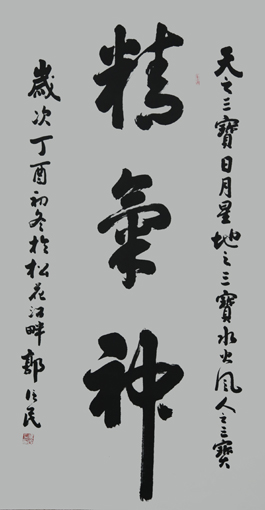 天之三寶日月星地之三寶水火風人之三寶
精氣神
歲次丁酉初冬於松花江畔郭民